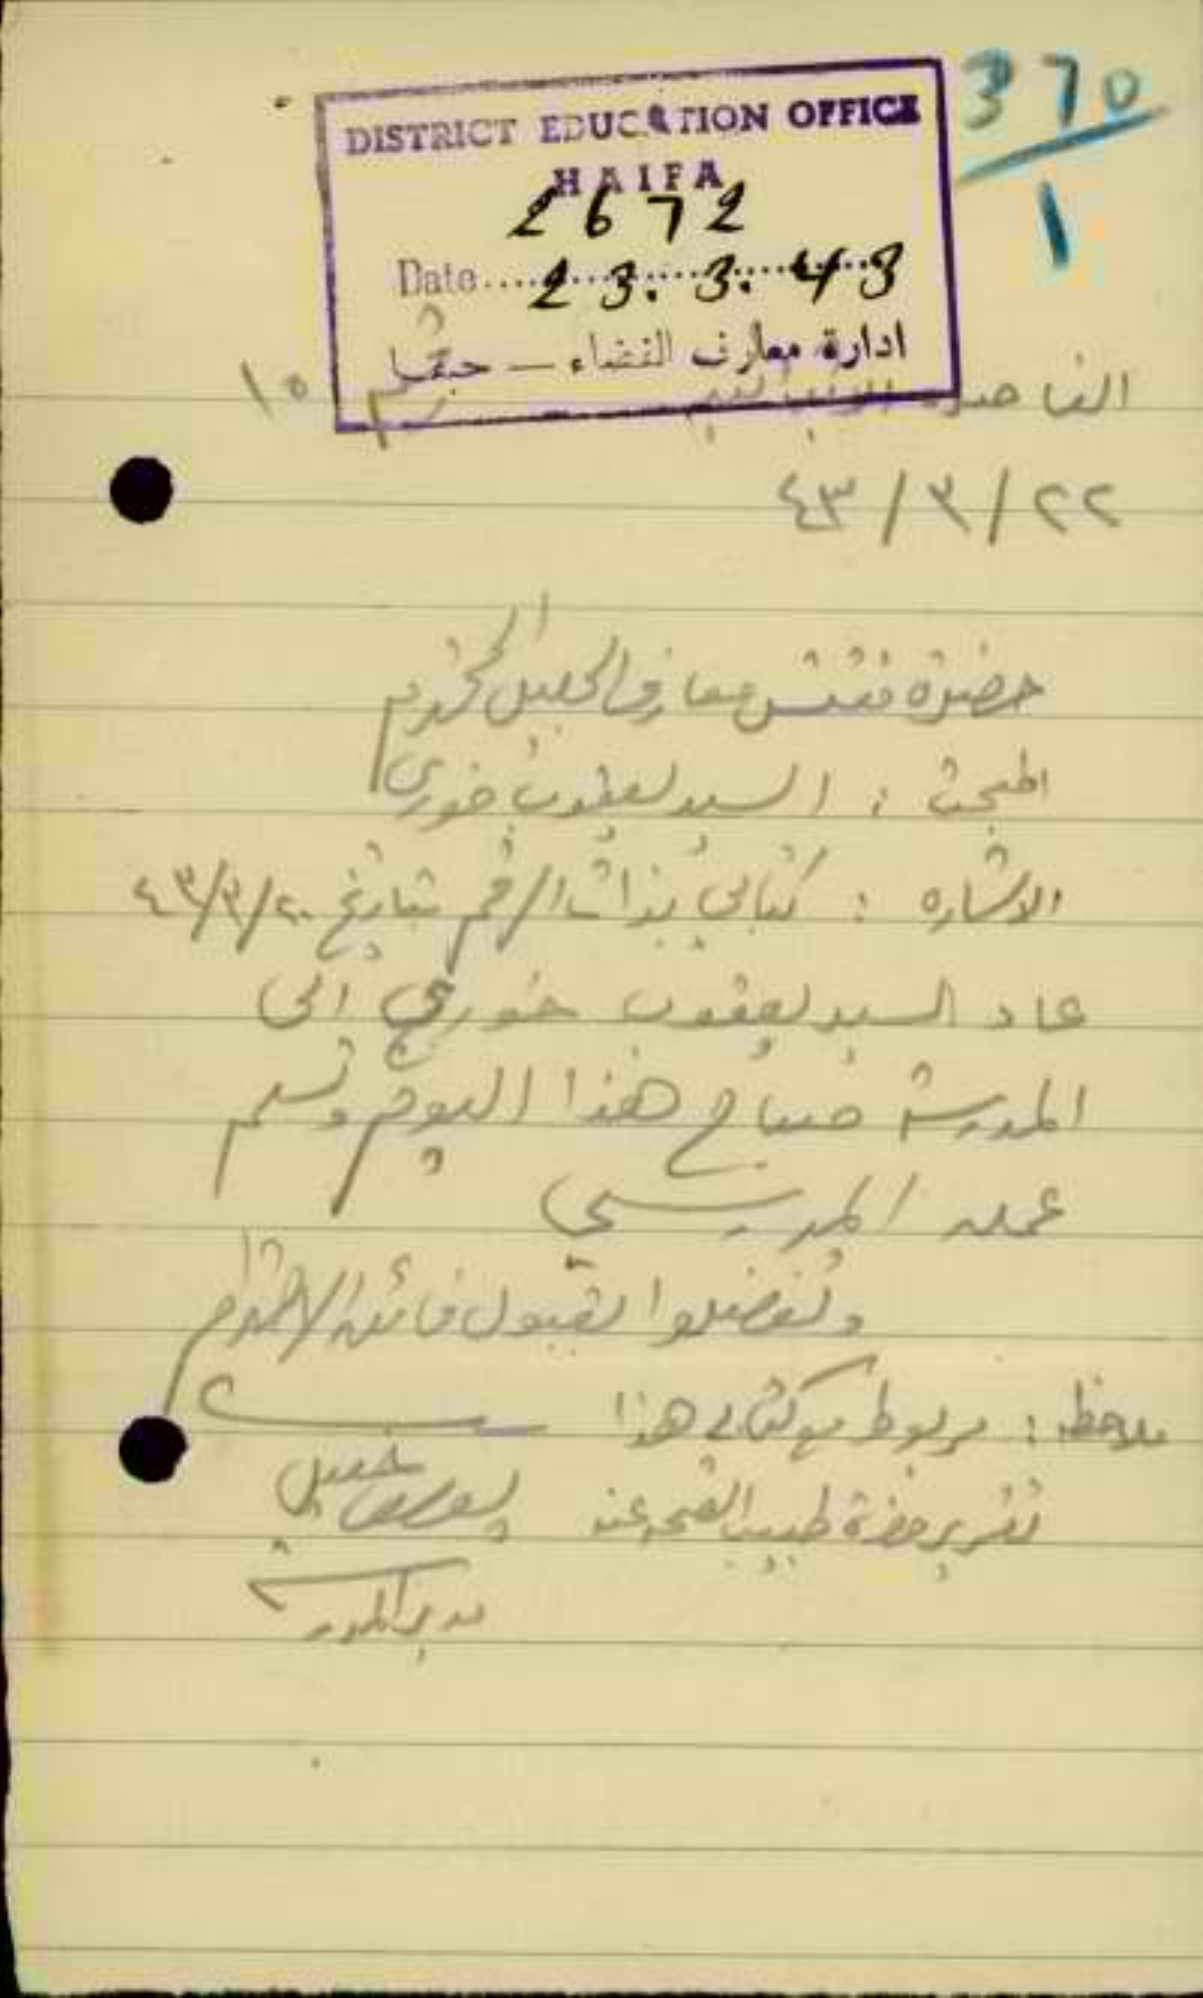 370
1
DISTRICT EDUCATION OFFICE
HAIFA
2672
Date....23.3.43
ادارة معارف القضاء — حيفا
الناصرة رقم ١٥
٢٢/٣/٤٣
حضرة مفتش معارف الجليل المحترم
المبحث : السيد يعقوب خوري
الاشاره : كتابي بذات الرقم بتاريخ ٢٠/٣/٤٣
عاد السيد يعقوب خوري الى
المدرسة صباح هذا اليوم وتسلم
عمله المدرسي
وتفضلوا بقبول فائق الاحترام
ملاحظه : مربوط مع كتابي هذا
تقرير حضرة طبيب الصحه عنه
مدير المدرسة